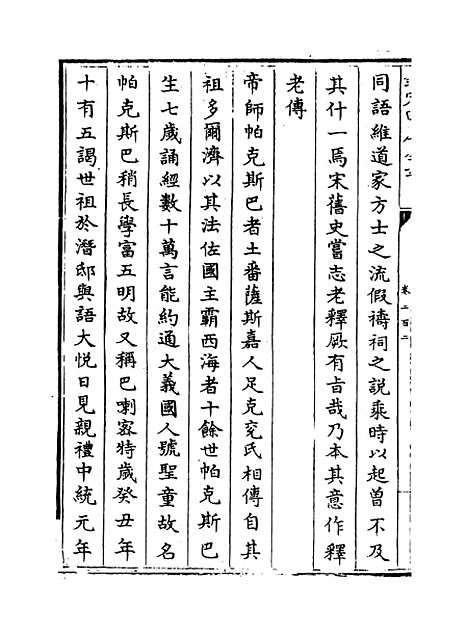 同語維道家方士之流假禱祠之說乘時以起曾不及
其什一焉宋舊史嘗志老釋厥有㫖哉乃本其意作釋
老傳
帝師帕克斯巴者土番薩斯嘉人足克衮氏相傳自其
祖多爾濟以其法佐國主霸西海者十餘世帕克斯巴
生七歳誦經數十萬言能約通大義國人號聖童故名
帕克斯巴稍長學富五明故又稱巴喇密特歳癸丑年
十有五謁世祖於潛邸與語大悅日見親禮中統元年
卷二百二